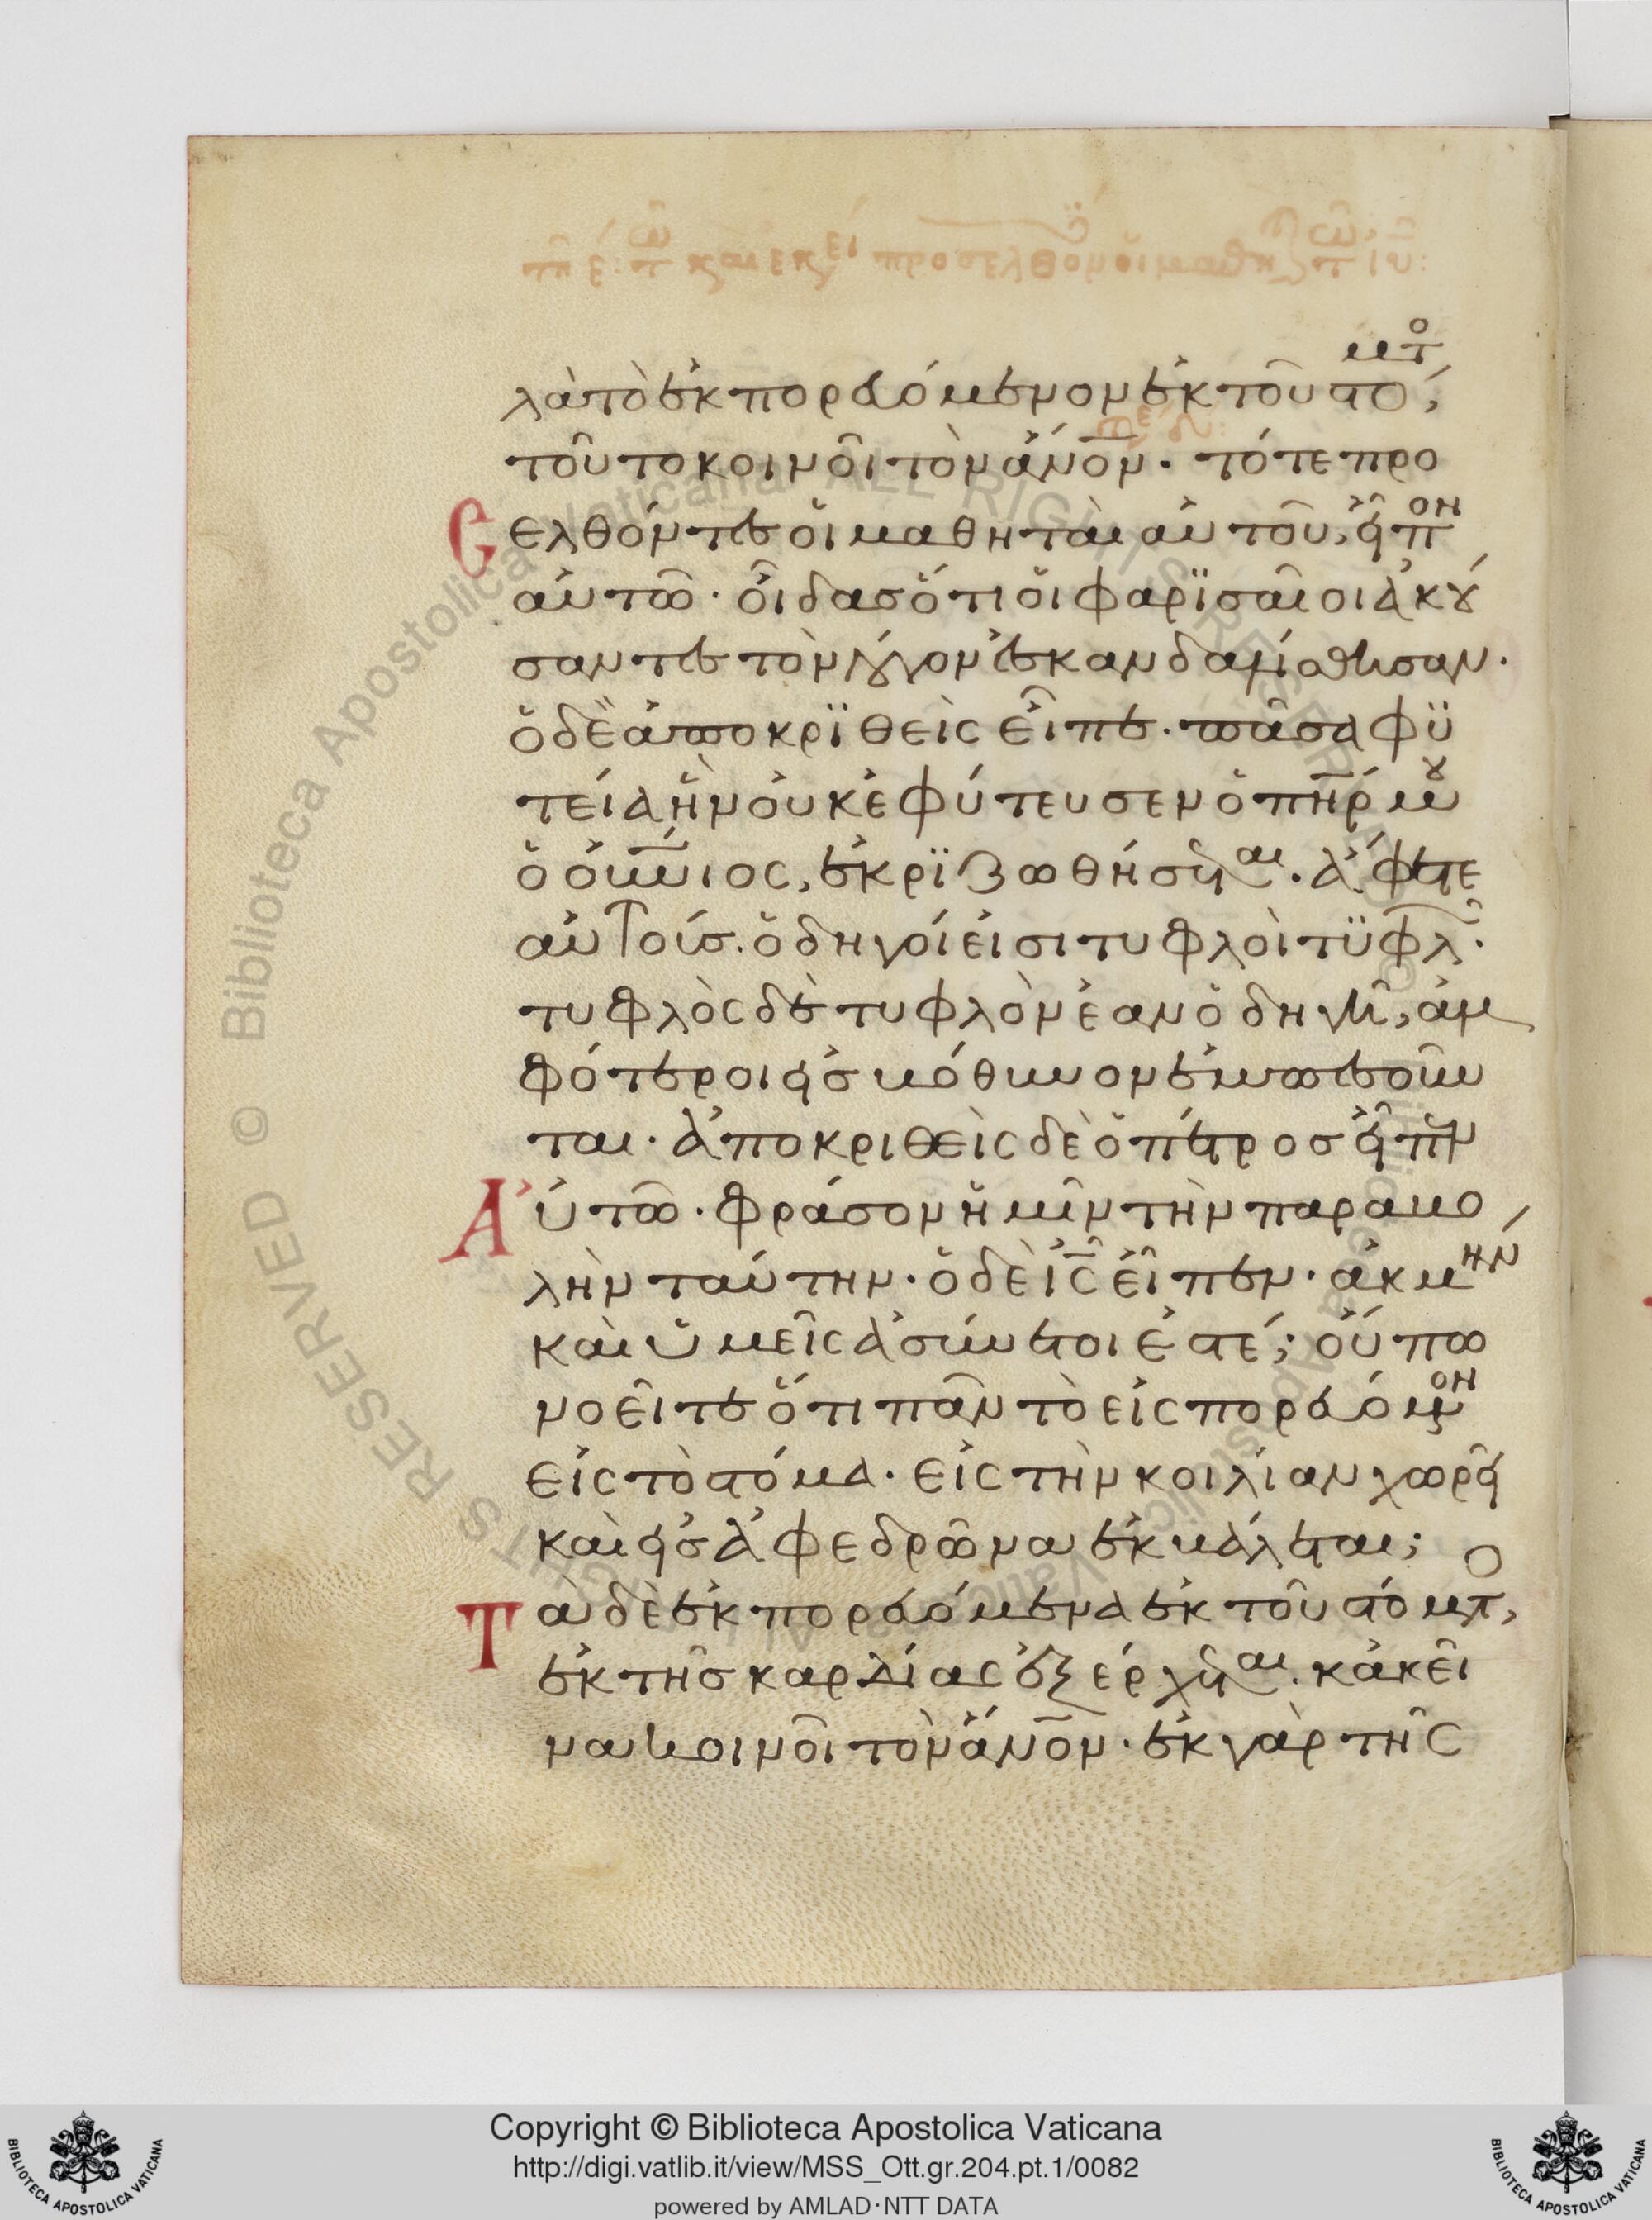 λὰ τὸ ἐκπορευόμενον ἐκ τοῦ στόματο,
τοῦτο κοινοῖ τὸν ἄνον. τότε προ
σελθόντες οἱ μαθηταὶ αὐτοῦ, εἶπον
αὐτῶ. οἶδας ὅτι οἱ φαρϊσαῖοι ἀκού
σαντες τὸν λόγον ἐσκανδαλίσθησαν.
ὁ δὲ ἀποκρϊθεὶς εἶπε. πᾶσα φϋ
τεία ἣν οὐκ ἐφύτευσεν ὁ πηρ μου
ὁ οὐνιος, ἐκρϊζωθήσεται. ἄφετε
αὐτούς. ὁδηγοί εἰσι τυφλοὶ τϋφλ.
τυφλὸς δὲ τυφλὸν ἐὰν ὁδηγῆ, ἀμ
φότεροι εἰς βόθυνον ἐμπεσοῦν
ται. ἀποκριθεὶς δὲ ὁ πέτρος εἶπεν
Αὐτῶ. φράσον ἡμῖν τὴν παραβο
λὴν ταύτην. ὁ δὲ ις εἶπεν. ἀκμην
καὶ ὑμεῖς ἀσύνετοι ἐστέ; οὔπω
νοεῖτε ὅτι πᾶν τὸ εἰσπορευόμενον
εἰς τὸ στόμα. εἰς τὴν κοιλίαν χωρεῖ
καὶ εἰς ἀφεδρῶνα ἐκβάλεται;
Τὰ δὲ ἐκπορευόμενα ἐκ τοῦ στόματο,
ἐκ τῆς καρδίας ἐξέρχεται. κἀκεῖ
να κοινοῖ τὸν ἄνον. ἐκ γὰρ τῆς
Copyright © Biblioteca Apostolica Vaticana
http://digi.vatlib.it/view/MSS_Ott.gr.204.pt.1/0082
powered by AMLAD·NTT DATA
BIBLIOTECA APOSTOLICA VATICANA
BIBLIOTECA APOSTOLICA VATICANA